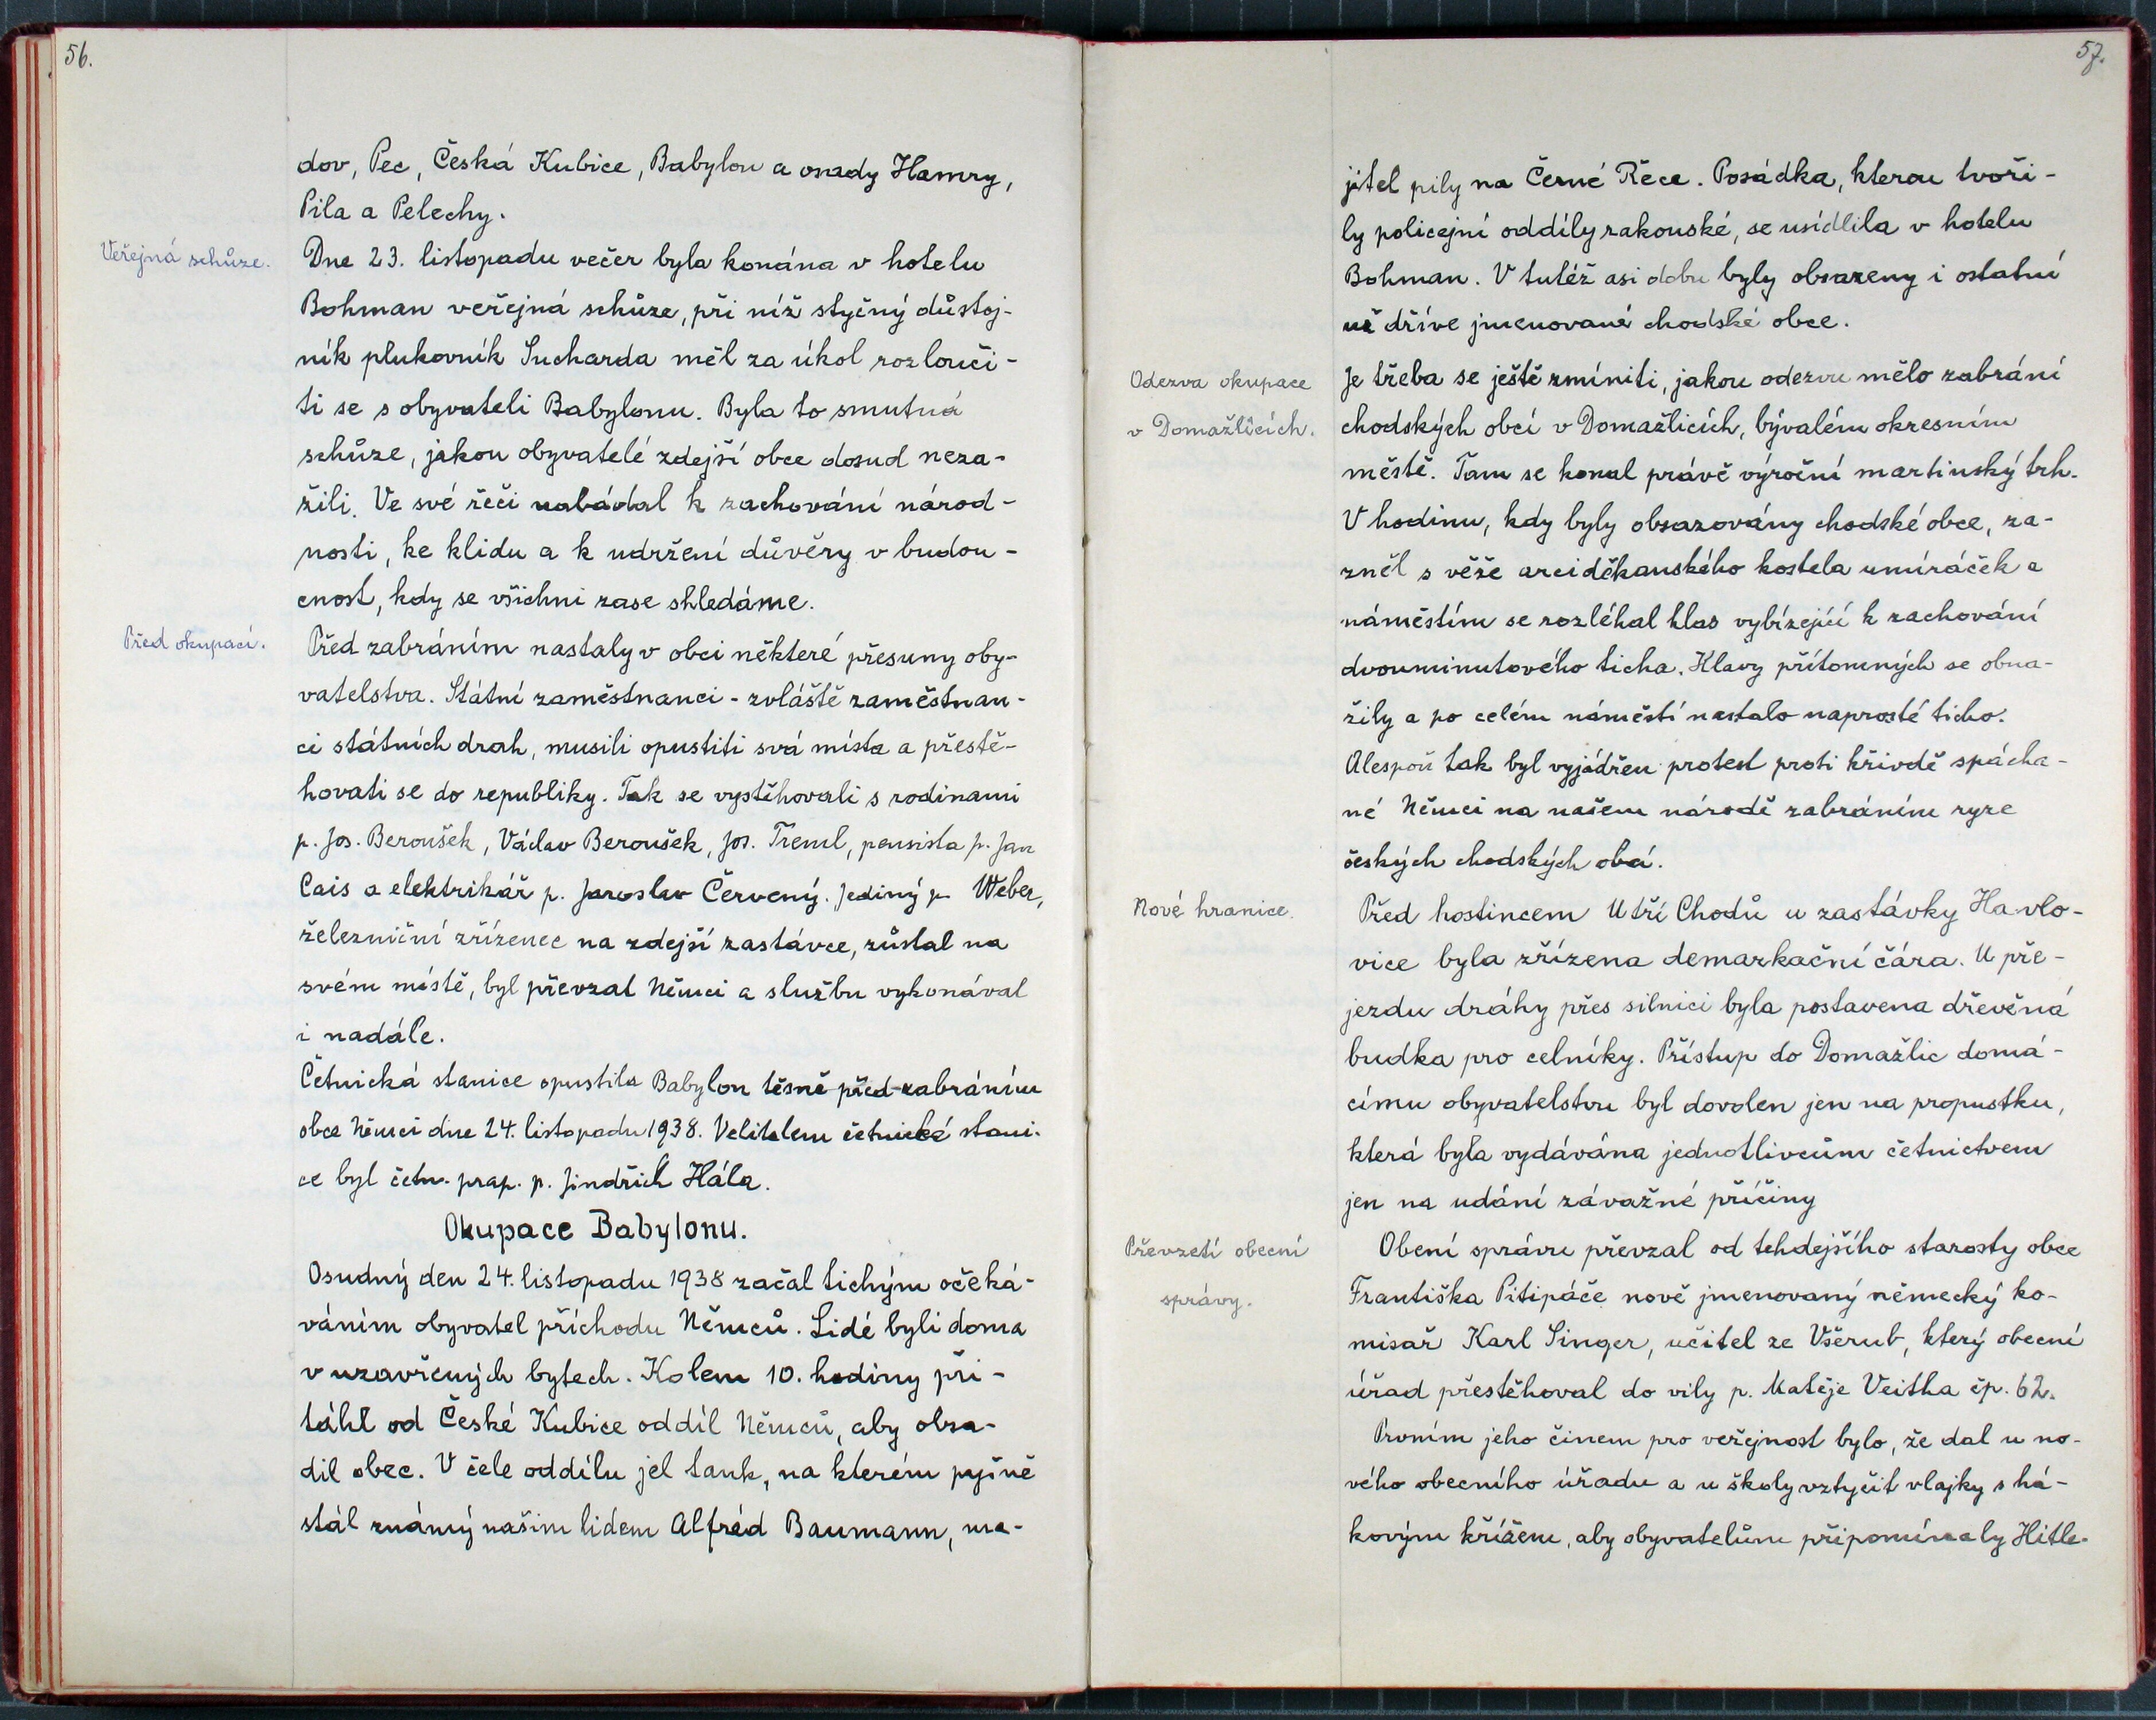 56.
dov, Pec, Česká Kubice, Babylon a osady Hamry,
Pila a Pelechy.
Veřejná schůze.
Dne 23. listopadu večer byla konána v hotelu
Bohman veřejná schůze, při níž styčný důstoj-
ník plukovník Sucharda měl za úkol rozlouči-
ti se s obyvateli Babylonu. Byla to smutná
schůze, jakou obyvatelé zdejší obce dosud neza-
žili. Ve své řeči nabádal k zachování národ-
nosti, ke klidu a k udržení důvěry v budou-
cnost, kdy se všichni zase shledáme.
Před okupací.
Před zabráním nastaly v obci některé přesuny oby-
vatelstva. Státní zaměstnanci - zvláště zaměstnan-
ci státních drah, musili opustiti svá místa a přestě-
hovati se do republiky. Tak se vystěhovali s rodinami
p. Jos. Beroušek, Václav Beroušek, Jos. Treml, pensista p. Jan
Cais a elektrikář p. Jaroslav Červený. Jediný p. Weber,
železniční zřízenec na zdejší zastávce, zůstal na
svém místě, byl převzat Němci a službu vykonával
i nadále.
Četnická stanice opustila Babylon těsně před zabráním
obce Němci dne 24. listopadu 1938. Velitelem četnické stani-
ce byl četn. prap. p. Jindřich Hála.
Okupace Babylonu.
Osudný den 24. listopadu 1938 začal tichým očeká-
váním obyvatel příchodu Němců. Lidé byli doma
v uzavřených bytech. Kolem 10. hodiny při-
táhl od České Kubice oddíl Němců, aby obsa-
dil obec. V čele oddílu jel tank, na kterém pyšně
stál známý našim lidem Alfréd Baumann, ma-
57.
jitel pily na Černé Řece. Posádka, kterou tvoři-
ly policejní oddíly rakouské, se usídlila v hotelu
Bohman. V tutéž asi dobu byly obsazeny i ostatní
už dříve jmenované chodské obce.
Odezva okupace
v Domažlicích.
Je třeba se ještě zmíniti, jakou odezvu mělo zabrání
chodských obcí v Domažlicích, bývalém okresním
městě. Tam se konal právě výroční martinský trh.
V hodinu, kdy byly obsazovány chodské obce, za-
zněl s věže arciděkanského kostela umíráček a
náměstím se rozléhal hlas vybízející k zachování
dvouminutového ticha. Hlavy přítomných se obna-
žily a po celém náměstí nastalo naprosté ticho.
Alespoň tak byl vyjádřen protest proti křivdě spácha-
né Němci na našem národě zabráním ryze
českých chodských obcí.
Nové hranice.
Před hostincem U tří Chodů u zastávky Havlo-
vice byla zřízena demarkační čára. U pře-
jezdu dráhy přes silnici byla postavena dřevěná
budka pro celníky. Přístup do Domažlic domá-
címu obyvatelstvu byl dovolen jen na propustku,
která byla vydávána jednotlivcům četnictvem
jen na udání závažné příčiny
Převzetí obecní
správy.
Obení správu převzal od tehdejšího starosty obce
Františka Pitipáče nově jmenovaný německý ko-
misař Karl Singer, učitel ze Všerub, který obecní
úřad přestěhoval do vily p. Matěje Veitha čp. 62.
Prvním jeho činem pro veřejnost bylo, že dal u no-
vého obecního úřadu a u školy vztyčit vlajky s há-
kovým křížem, aby obyvatelům připomínaly Hitle-